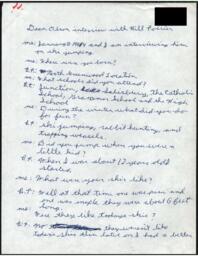 Dean Olson interview with Bill Poirier
me: and I am interviewing him
on ski jumping.
me: When was you born?
B.P. North Greenwood Location
me: What schools did you attend?
B.P. Junction, Salisbury, The Catholic
School, Grammar School and the High
School
me: During the winter what did you do
for fun?
B.P. ski jumping, rabbit hunting, and
trapping weasels.
me: Did you jump when you were a
little kid?
B.P. When I was about 12 years old I
started.
me: What were your skis like?
B.P: Well at that time one was pine and
one was maple they were about 6 feet
long.
me: Were they like todays skis?
B.P. No they weren't like
todays skis then later on I had a better